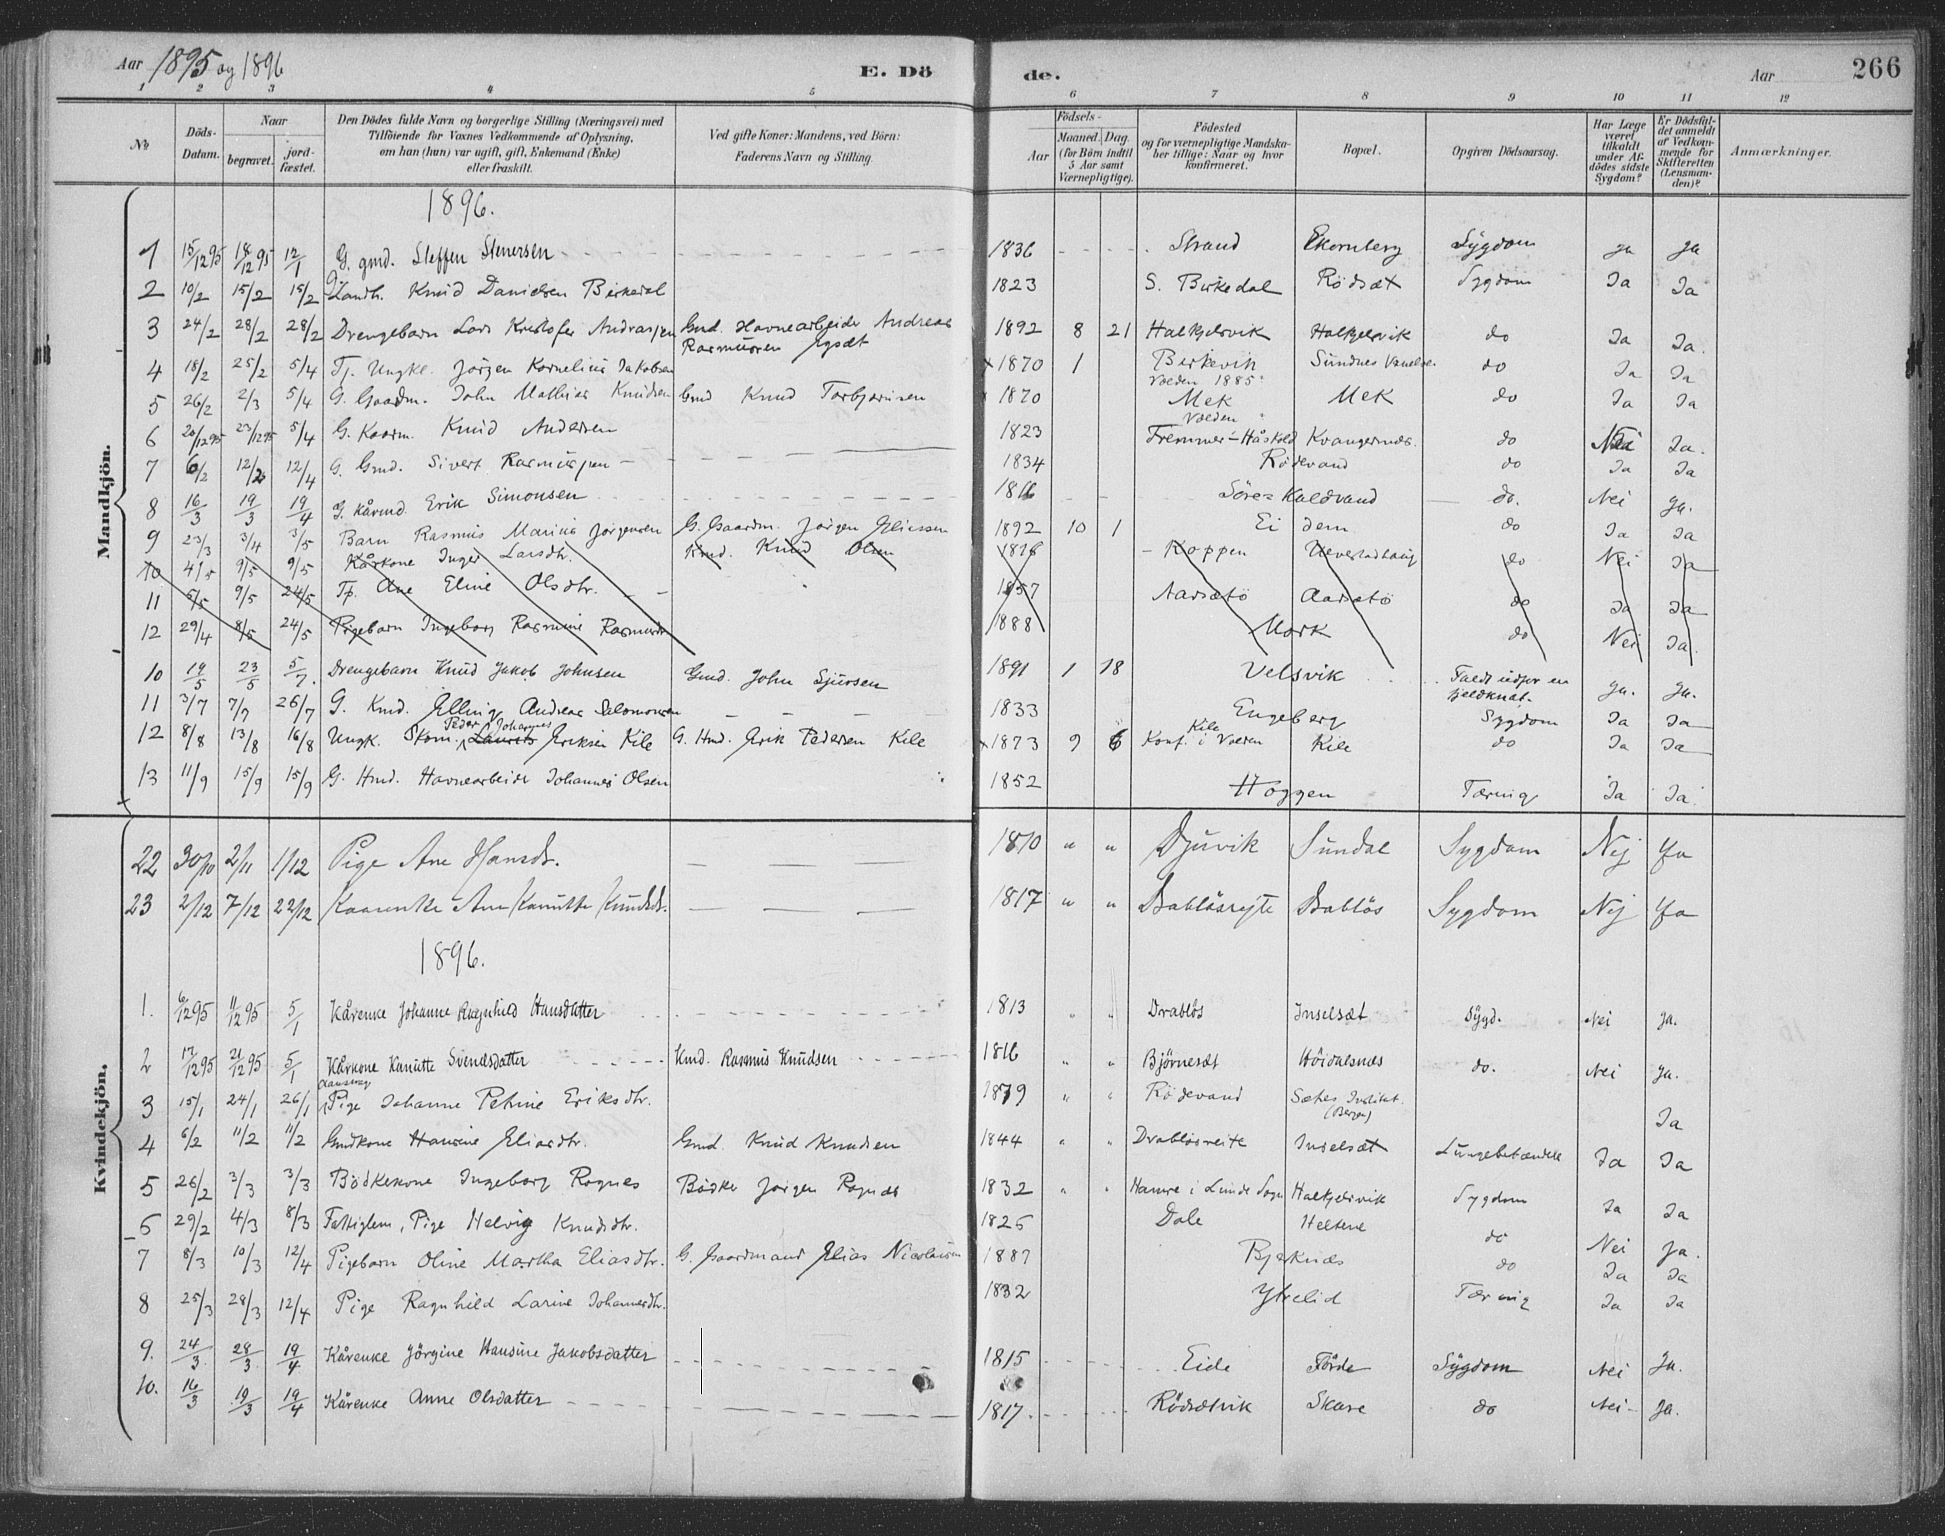 Aar 1895 og 1896
E. Dö de.
Aar 266
1 2 3 4 5 6 7 8 9 10 11 12
No
Döds-Datum.
Naar
begravet.
jord-fæstet.
Den Dödes fulde Navn og borgerlige Stilling (Næringsvei) med
Tilföiende for Voxnes Vedkommende af Oplysning,
om han (hun) var ugift, gift, Enkemand (Enke)
eller fraskilt.
Ved gifte Koner: Mandens, ved Börn:
Faderens Navn og Stilling.
Födsels-
Aar
Maaned. Dag.
(for Börn indtil
5 Aar samt
Værnepligtige).
Födested
og for værnepligtige Mandska-
ber tillige: Naar og hvor
konfirmeret.
Bopæl.
Opgiven Dödsaarsag.
Har Læge
været
tilkaldt
under Af-
dödes sidste
Sygdom?
Er Dödsfal-
det anmeldt
af Vedkom-
mende for
Skifteretten
(Lensman-
den)?
Anmærkninger.
Mandkjön.
1896.
1 15/12 95 18/12 95 12/1 G. gmd. Steffen Stenersen 1836 Strand Ekornberg Sygdom ja ja
2 10/2 15/2 15/2 Knud Danielsen Birkedal 1823 S. Birkedal Rödsæt Sygdom Ja Ja
3 24/2 28/2 28/2 Drengebarn Lars Kristofer Andreassen Gmd. Havnearbeider Andreas 1892 8 21 Halkjelsvik Halkjelsvik do Ja Ja.
Rasmussen
4 18/2 25/2 5/4 Tj. Ungk. Jörgen Kornelius Jakobsen 1870 1 Birkevik Sundnes do Ja Ja
Volden 1885
5 26/2 2/3 5/4 G. Gaardm. John Mathias Knudsen Gmd Knud Torbjørnsen 1870 Mek Mek do Ja Ja
Volden
6 20/12 95 23/12 95 5/4 G. Kaarm. Knud Andersen 1823 Fremmer-Håskold Kvangernæs. do Nei Ja.
7 6/2 12/2 12/4 G. Gmd. Sivert Rasmussen 1834 Rödevand do Ja Ja
8 16/3 19/3 19/4 G. Kårmd. Erik Simonsen 1816 Söre Kaldvand do. Nei ja.
9 23/3 3/4 3/5 Barn Rasmus Marius Jørgensen G. Gaardm. Jørgen Eliassen 1892 10 1 Eidem do Ja Ja
10 4/5 9/5 9/5 Kårkone Inger Larsdtr. Kmd. Knud Olsen 1816 Koppen do Nei Ja
11 5/5 9/5 24/5 Tp. Ane Eline Olsdtr. 1857 Aarsætö Aarsætö do Ja Ja
12 29/4 8/5 24/5 Pigebarn Ingeborg Rasmine Rasmusdtr 1888 Mork do Nei Ja.
10 19/5 23/5 5/7. Drengebarn Knud Jakob Johnsen Gmd. John Sjursen 1891 1 18 Velsvik Faldt udfor en
fjeldknat. ja. ja.
11 3/7 7/7 26/7 G. Kmd. Elling Andreas Salomonsen 1833 Engeberg Sygdom Ja Ja
12 8/8 13/8 16/8 Ungk. Skom. Peder Johannes Laurits Eriksen Kile G. Hmd. Erik Pedersen Kile 1873 9 6 Kile Konf. i Volden Kile do Ja Ja
13 11/9 15/9 15/9 G. Hmd. Havnearbeider Johannes Olsen 1852 Hoggen Tæring Ja Ja
Kvindekjön.
22 30/10 2/11 1/12 Pige Ane Hansdt. 1870 " " Djuvik Sundal Sygdom Nej Ja
23 2/12 7/12 22/12 Kaarenke Ane Kanutte Knudsdt. 1817 " " Drablösreite Drablös Sygdom Nej Ja
1896.
1. 6/12 95 11/12 95 5/1 Kårenke Johanne Ragnhild Hansdatter 1813 " " Drablös Inselsæt Sygd. Nei ja.
2 17/12 95 21/12 95 5/1 Kårkone Kanutte Svendsdatter Kmd. Rasmus Knudsen 1816 " " Bjørnesæt Höidalsnæs do. Nei ja.
3 15/1 24/1 26/1 Døvstum Pige Johanne Petrine Eriksdtr. 1879 " " Rödevand Sæters Institut. (Bergen) Ja
4 6/2 11/2 11/2 Gmdkone Hansine Eliasdtr. Gmd. Knud Knudsen 1844 " " Drablösreite Inselsæt Lungebetændelse Ja Ja
5 26/2 3/3 3/3 Bödkerkone Ingeborg Rognes Bödker Jørgen Rognes 1832 " " Hamre i Linde Sogn Halkjelsvik Sygdom Ja Ja
6 29/2 4/3 8/3 Fattiglem, Pige Helvig Knudsdtr. 1825 Dale Heltene do Nei Ja.
7 8/3 10/3 12/4 Pigebarn Oline Martha Eliasdtr. G. Gaardmand Elias Nicolaisen 1887 Bjerknæs do Ja Ja
8 25/3 28/3 12/4 Pige Ragnhild Larine Johannesdtr. 1832 Ytrelid Tæring Ja Ja
9. 24/3 28/3 19/4 Kårenke Jörgine Hansine Jakobsdatter 1815 Eide Förde Sygdom Nei Ja.
10. 16/3 19/3 19/4 Kårenke Anne Olsdatter 1817. Rödsætvik Skare do Nei ja.